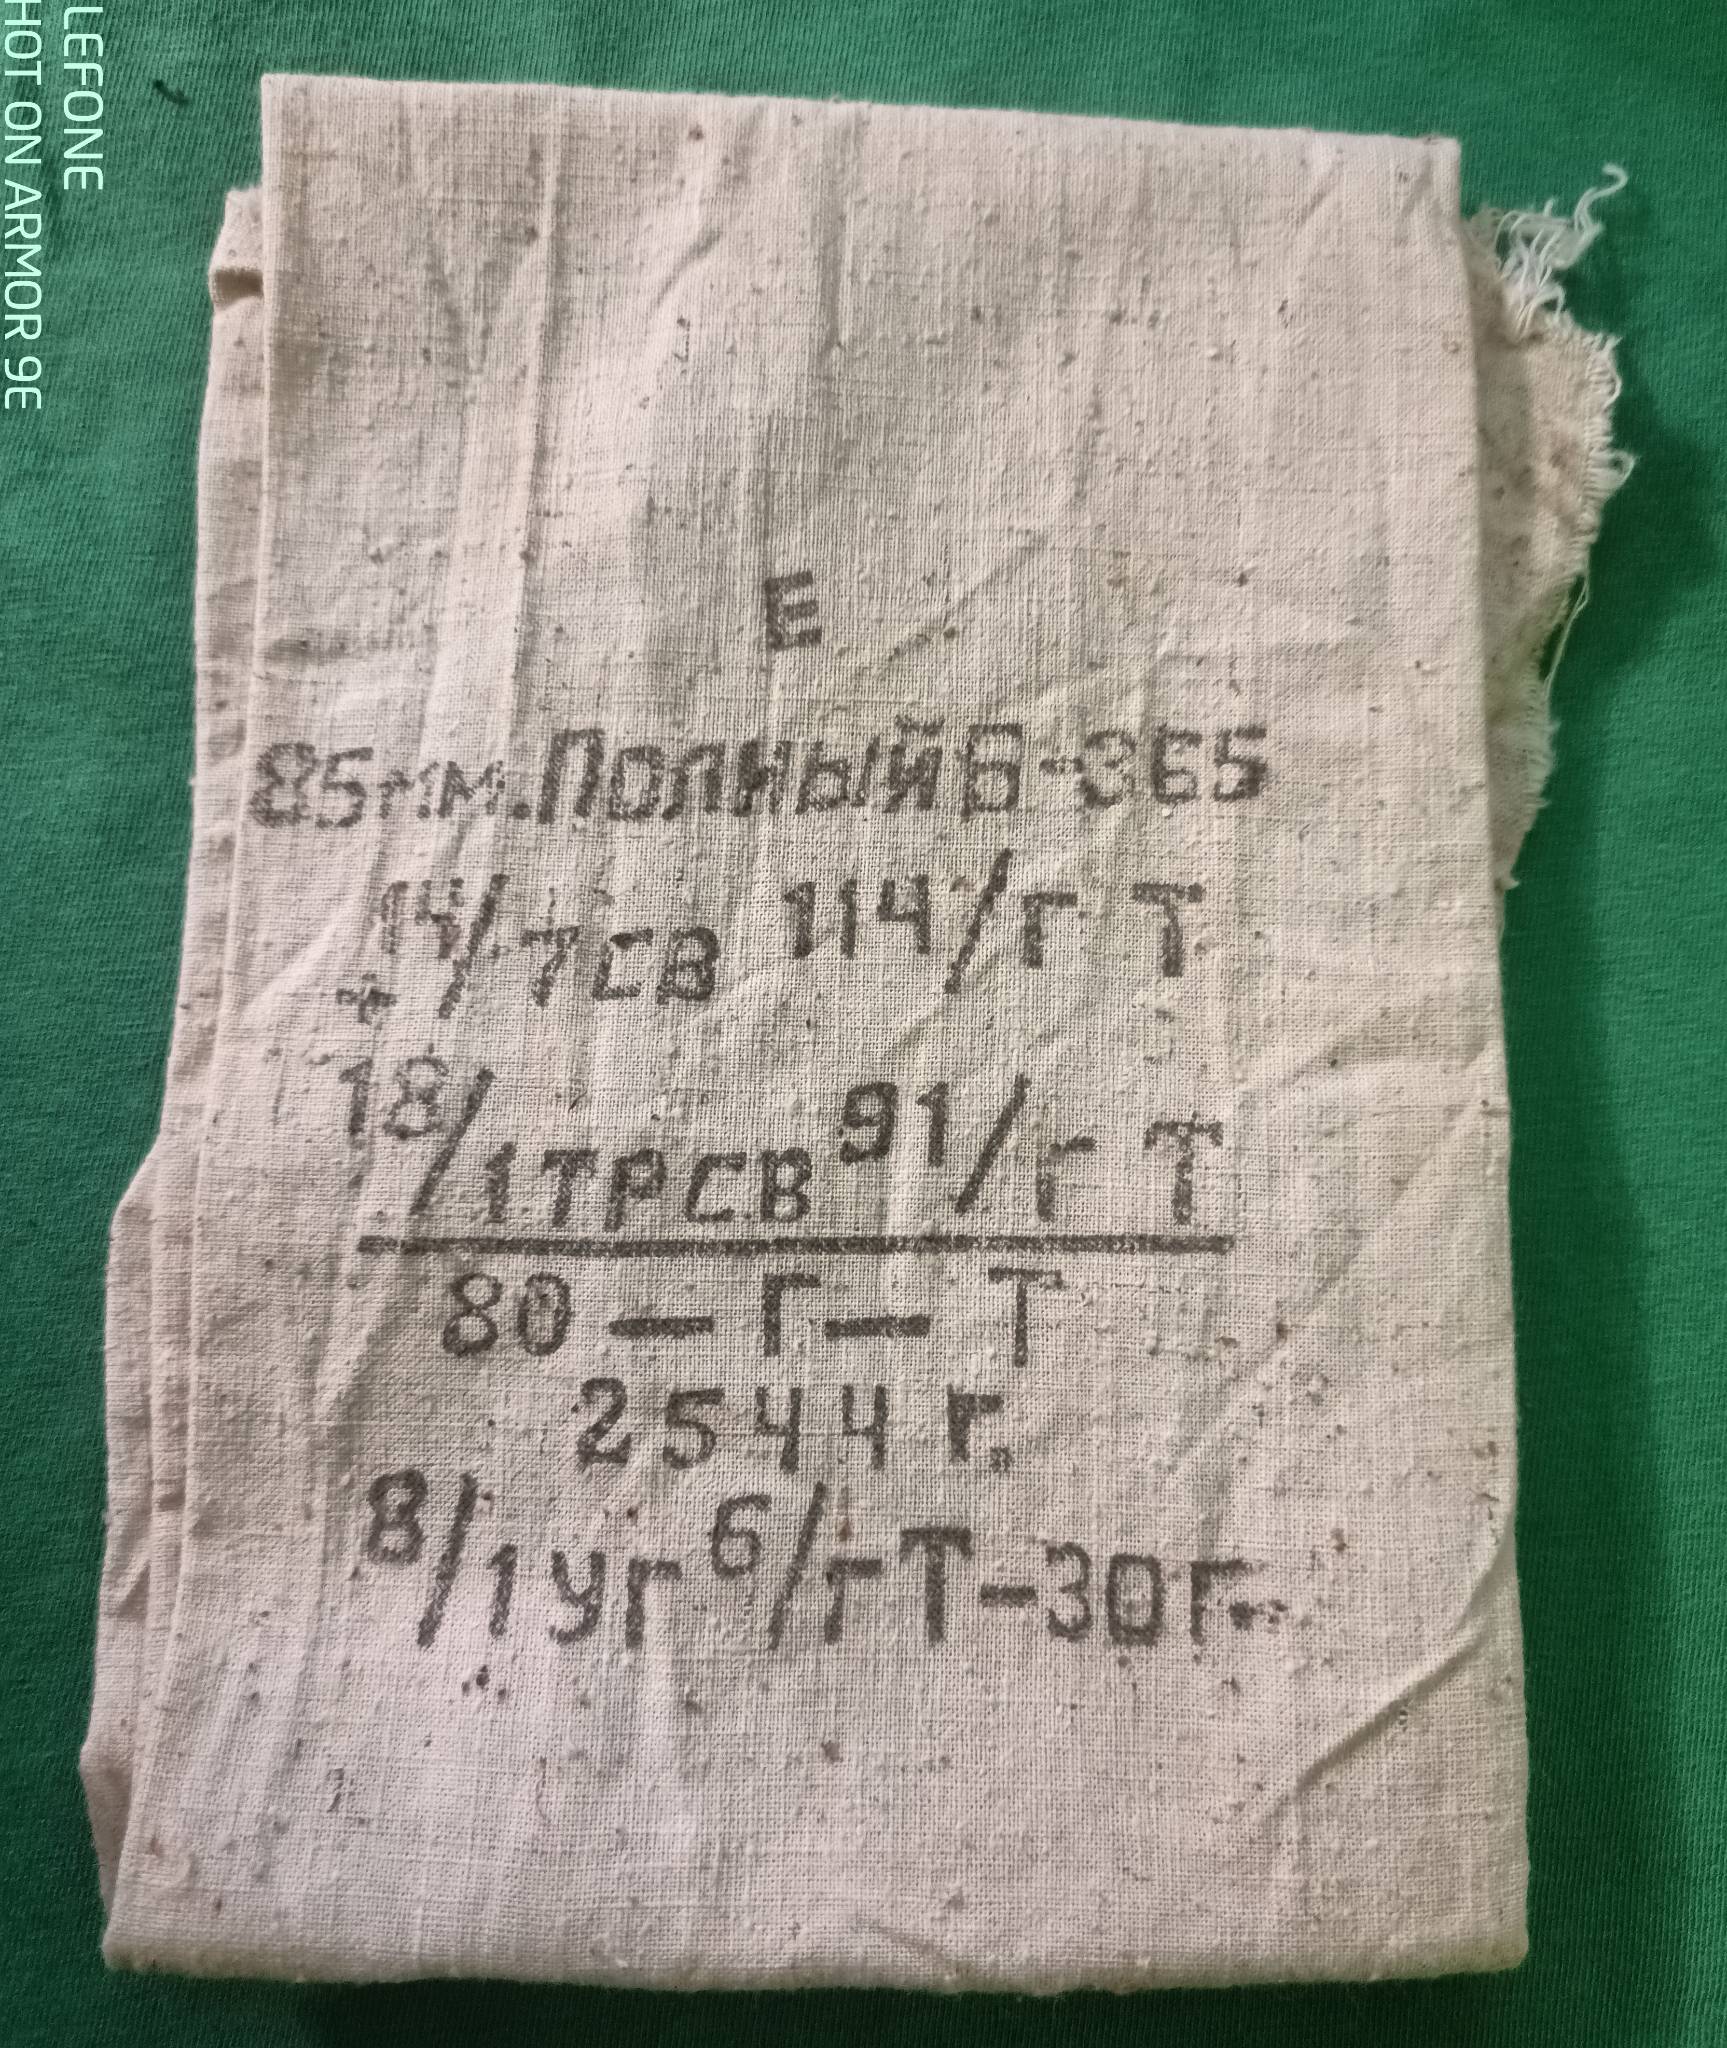 Е
85мм.Полный Б-365
14/7СВ 114/Г Т
+
18/1ТРСВ 91/Г Т
80 — Г — Т
2544 г.
8/1УГ 6/Г Т-30Г.
LEFONE
HOT ON ARMOR 9E